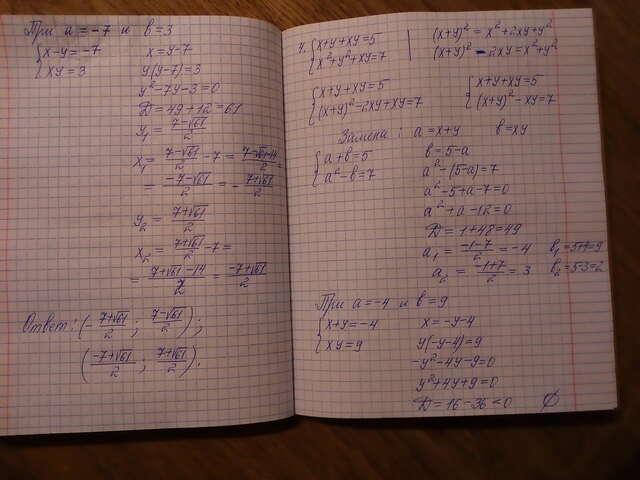 При a = -7 и b = 3
{ x-y = -7
xy = 3
x = y-7
y(y-7) = 3
y² - 7y - 3 = 0
D = 49 + 12 = 61
y₁ = (7-√61)/2
x₁ = (7-√61)/2 - 7 = (7-√61-14)/2 =
= (-7-√61)/2 = - (7+√61)/2
y₂ = (7+√61)/2
x₂ = (7+√61)/2 - 7 =
= (7+√61-14)/2 = (-7+√61)/2
Ответ: (- (7+√61)/2 ; (7-√61)/2 );
( (-7+√61)/2 ; (7+√61)/2 ).
4. { x+y+xy=5
x²+y²+xy=7
(x+y)² = x²+2xy+y²
(x+y)² - 2xy = x²+y²
{ x+y+xy=5
(x+y)²-2xy+xy=7
{ x+y+xy=5
(x+y)²-xy=7
Замена: a = x+y b = xy
{ a+b=5
a²-b=7
b = 5-a
a²-(5-a)=7
a²-5+a-7=0
a²+a-12=0
D = 1+48=49
a₁ = (-1-7)/2 = -4 b₁ = 5+4=9
a₂ = (-1+7)/2 = 3 b₂ = 5-3=2
При a = -4 и b = 9
{ x+y = -4
xy = 9
x = -y-4
y(-y-4) = 9
-y²-4y-9=0
y²+4y+9=0
D = 16-36 <0 ∅